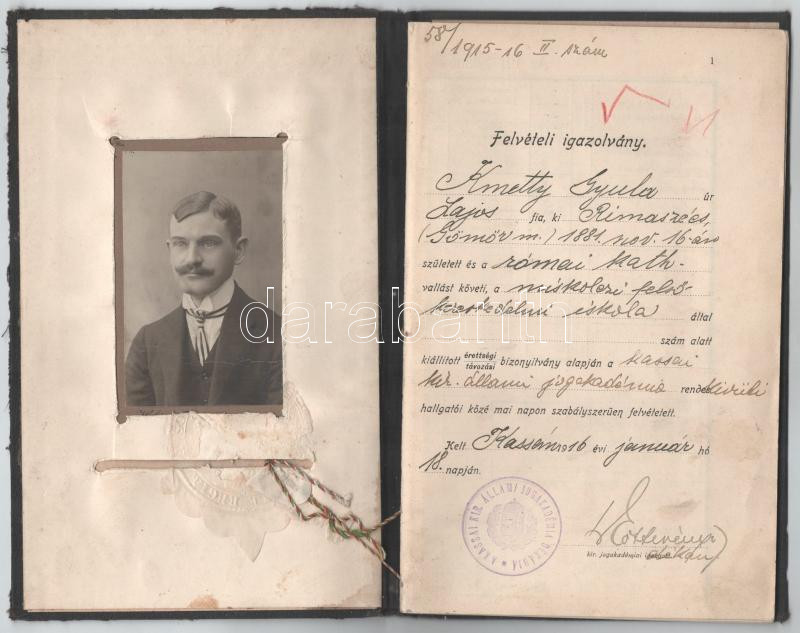 58/1915-16 II. szám
1
Felvételi igazolvány.
Kmetty Gyula úr
Lajos fia, ki Rimaszécs,
(Gömör m.) 1881. nov. 16-án
született és a római kath-
vallást követi, a miskolczi felső
kereskedelmi iskola által
szám alatt
kiállított érettségi
távozási bizonyítvány alapján a kassai
kir. állami jogakadémia rendkívüli
hallgatói közé mai napon szabályszerűen felvétetett.
Kelt Kassán 1916 évi január hó
18. napján.
A KASSAI KIR. ÁLLAMI JOGAKADÉMIA DÉKÁNJA
kir. jogakadémiai
dékán
darabanth